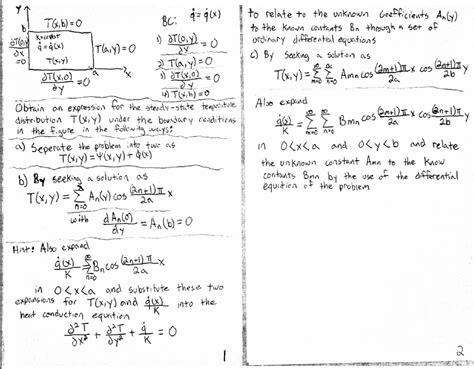 y
T(x,b)=0
BC:
q̇ = q̇(x)
b
∂T(0,y)/∂x = 0
K = const
q̇ = q̇(x)
T(x,y)
T(a,y)=0
a
x
∂T(x,0)/∂y = 0
1) ∂T(0,y)/∂x = 0
2) T(a,y) = 0
3) ∂T(x,0)/∂y = 0
4) T(x,b) = 0
Obtain an expression for the steady-state temperature
distribution T(x,y) under the boundary conditions
in the figure in the following ways:
a) Seperate the problem into two as
T(x,y) = Ψ(x,y) + φ(x)
b) By seeking a solution as
T(x,y) = Σ_{n=0}^{∞} A_n(y) cos (2n+1)π/2a x
with dA_n(0)/dy = A_n(b) = 0
Hint: Also expand
q̇(x)/K = Σ_{n=0}^{∞} B_n cos (2n+1)π/2a x
in 0<x<a and substitute these two
expansions for T(x,y) and q̇(x)/K into the
heat conduction equation
∂²T/∂x² + ∂²T/∂y² + q̇/K = 0
1
to relate to the unknown Coefficients A_n(y)
to the known contants Bn through a set of
ordinary differential equations
c) By Seeking a solution as
T(x,y) = Σ_{m=0}^{∞} Σ_{n=0}^{∞} Amn cos (2m+1)π/2a x cos (2n+1)π/2b y
Also expand
q̇(x)/K = Σ_{m=0}^{∞} Σ_{n=0}^{∞} Bmn cos (2m+1)π/2a x cos (2n+1)π/2b y
in 0<x<a and 0<y<b and relate
the unknown constant Amn to the Know
contants Bmn by the use of the differential
equation of the problem
2